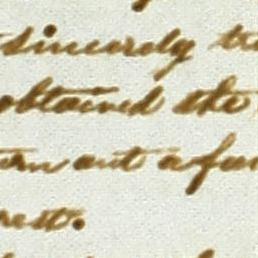 sincerely tr
obtained the
urn out a fa
rest.